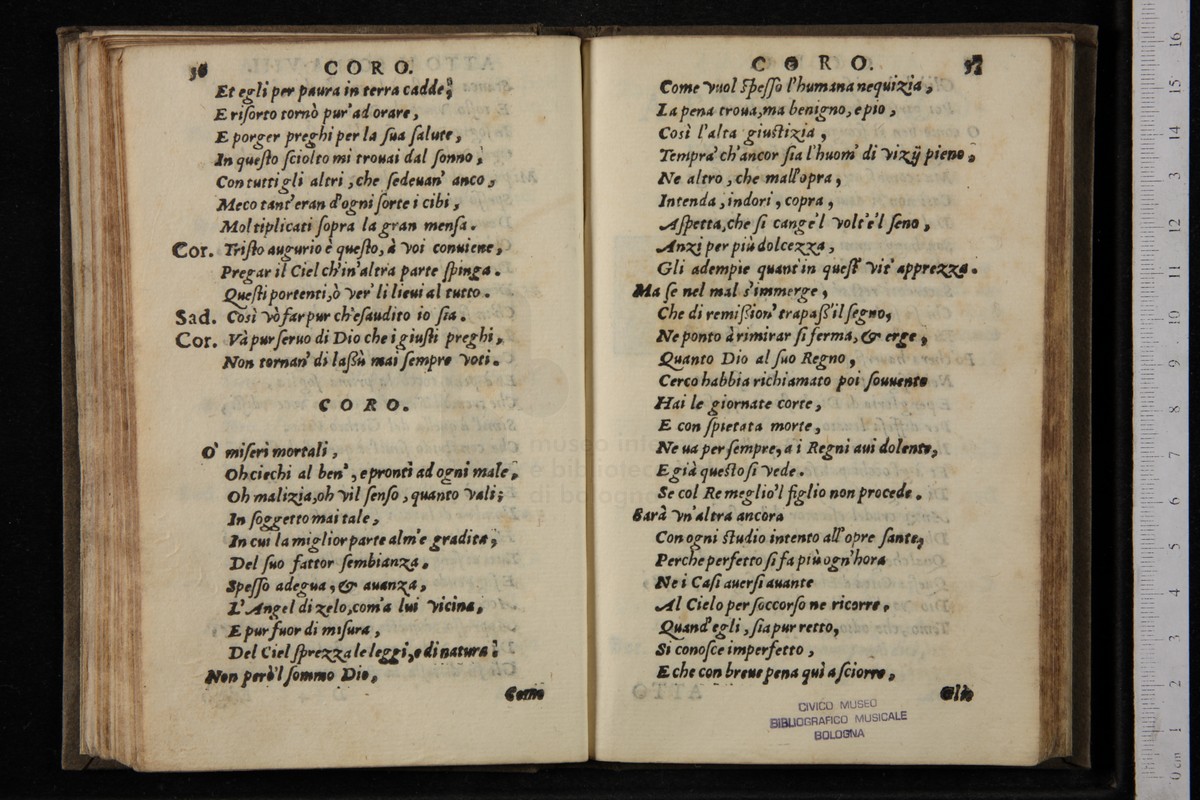 36
CORO.
Et egli per paura in terra cadde;
E risorto tornò pur' ad orare,
E porger preghi per la sua salute,
In questo sciolto mi trouai dal sonno,
Con tutti gli altri, che sedeuan' anco,
Meco tant' eran d'ogni sorte i cibi,
Moltiplicati sopra la gran mensa.
Cor. Tristo augurio è questo, à voi conuiene,
Pregar il Ciel ch'in' altra parte spinga.
Questi portenti, ò ver' li lieui al tutto.
Sad. Così vò far pur ch'esaudito io sia.
Cor. Và pur seruo di Dio che i giusti preghi,
Non tornan' di lassù mai sempre voti.
CORO.
O' miseri mortali,
Oh ciechi al ben', e pronti ad ogni male,
Oh malizia, oh vil senso, quanto vali;
In soggetto mai tale,
In cui la miglior parte alm'e gradita,
Del suo fattor sembianza.
Spesso adegua, & auanza,
L'Angel di zelo, com'a lui vicina,
E pur fuor di misura,
Del Ciel sprezza le leggi, e di natura?
Non però'l sommo Dio,
Come
CORO.
37
Come vuol spesso l'humana nequizia,
La pena troua, ma benigno, e pio,
Così l'alta giustizia,
Tempra' ch'ancor sia l'huom' di vizij pieno,
Ne altro, che mall'opra,
Intenda, indori, copra,
Aspetta, che si cange'l volt'e'l seno,
Anzi per più dolcezza,
Gli adempie quant'in quest' vit' apprezza.
Ma se nel mal s'immerge,
Che di remission' trapass'il segno,
Ne ponto à rimirar si ferma, & erge,
Quanto Dio al suo Regno,
Cerco habbia richiamato poi souuente
Hai le giornate corte,
E con spietata morte,
Ne ua per sempre, a i Regni aui dolente,
E già questo si vede.
Se col Re meglio'l figlio non procede.
Sarà vn'altra ancora
Con ogni studio intento all'opre sante,
Perche perfetto si fa più ogn'hora
Ne i Casi auersi auante
Al Cielo per soccorso ne ricorre,
Quand'egli, sia pur retto,
Si conosce imperfetto,
E che con breue pena quì a sciorre,
Glie
CIVICO MUSEO
BIBLIOGRAFICO MUSICALE
BOLOGNA